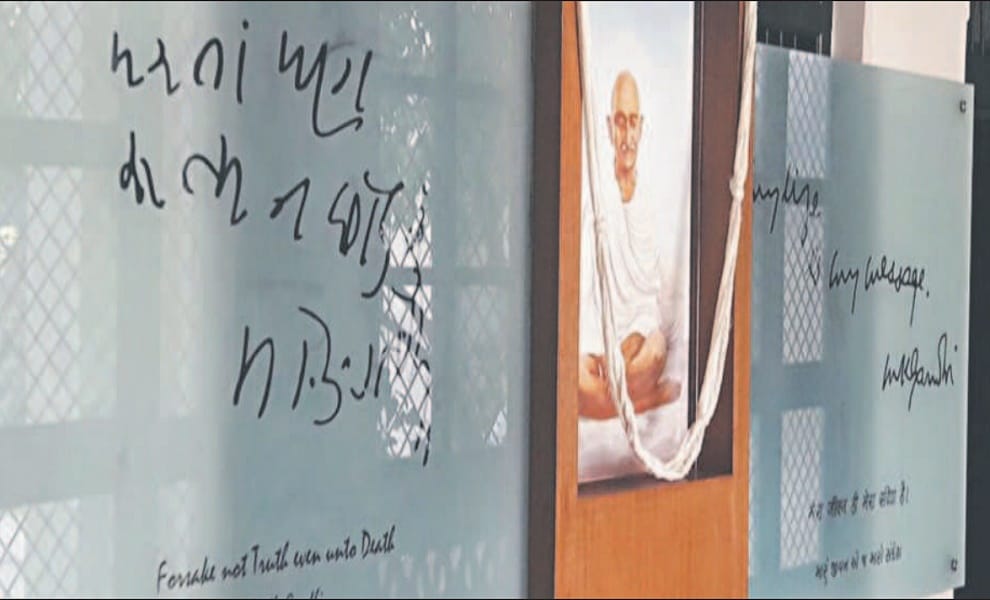 મરતાં પણ
ન
Forsake not Truth even unto Death
my life
is my message.
MKGandhi
मेरा जीवन ही मेरा संदेश है।
મારું જીવન એ જ મારો સંદેશ